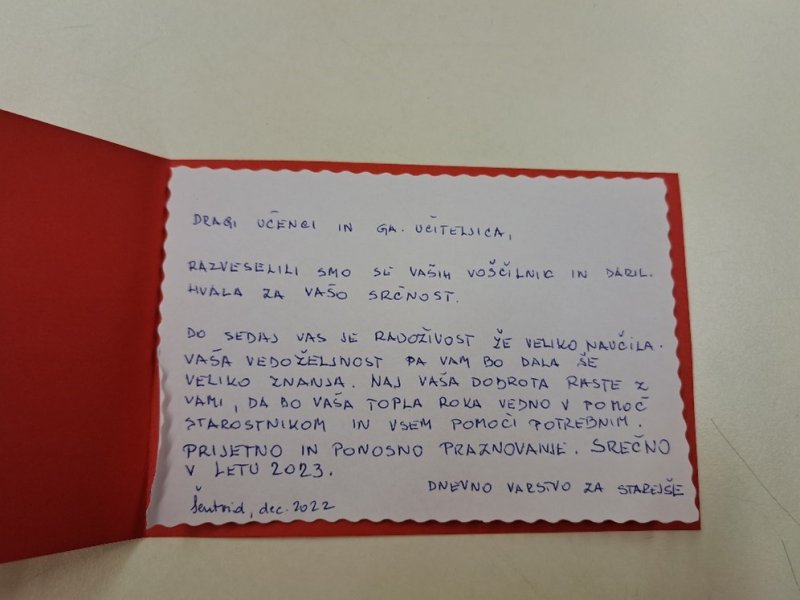 DRAGI UČENCI IN GA. UČITELJICA,
RAZVESELILI SMO SE VAŠIH VOŠČILNIC IN DARIL.
HVALA ZA VAŠO SRČNOST.
DO SEDAJ VAS JE RADOŽIVOST ŽE VELIKO NAUČILA.
VAŠA VEDOŽELJNOST PA VAM BO DALA ŠE
VELIKO ZNANJA. NAJ VAŠA DOBROTA RASTE Z
VAMI, DA BO VAŠA TOPLA ROKA VEDNO V POMOČ
STAROSTNIKOM IN VSEM POMOČI POTREBNIM.
PRIJETNO IN PONOSNO PRAZNOVANJE. SREČNO
V LETU 2023.
DNEVNO VARSTVO ZA STAREJŠE
Šentvid, dec. 2022